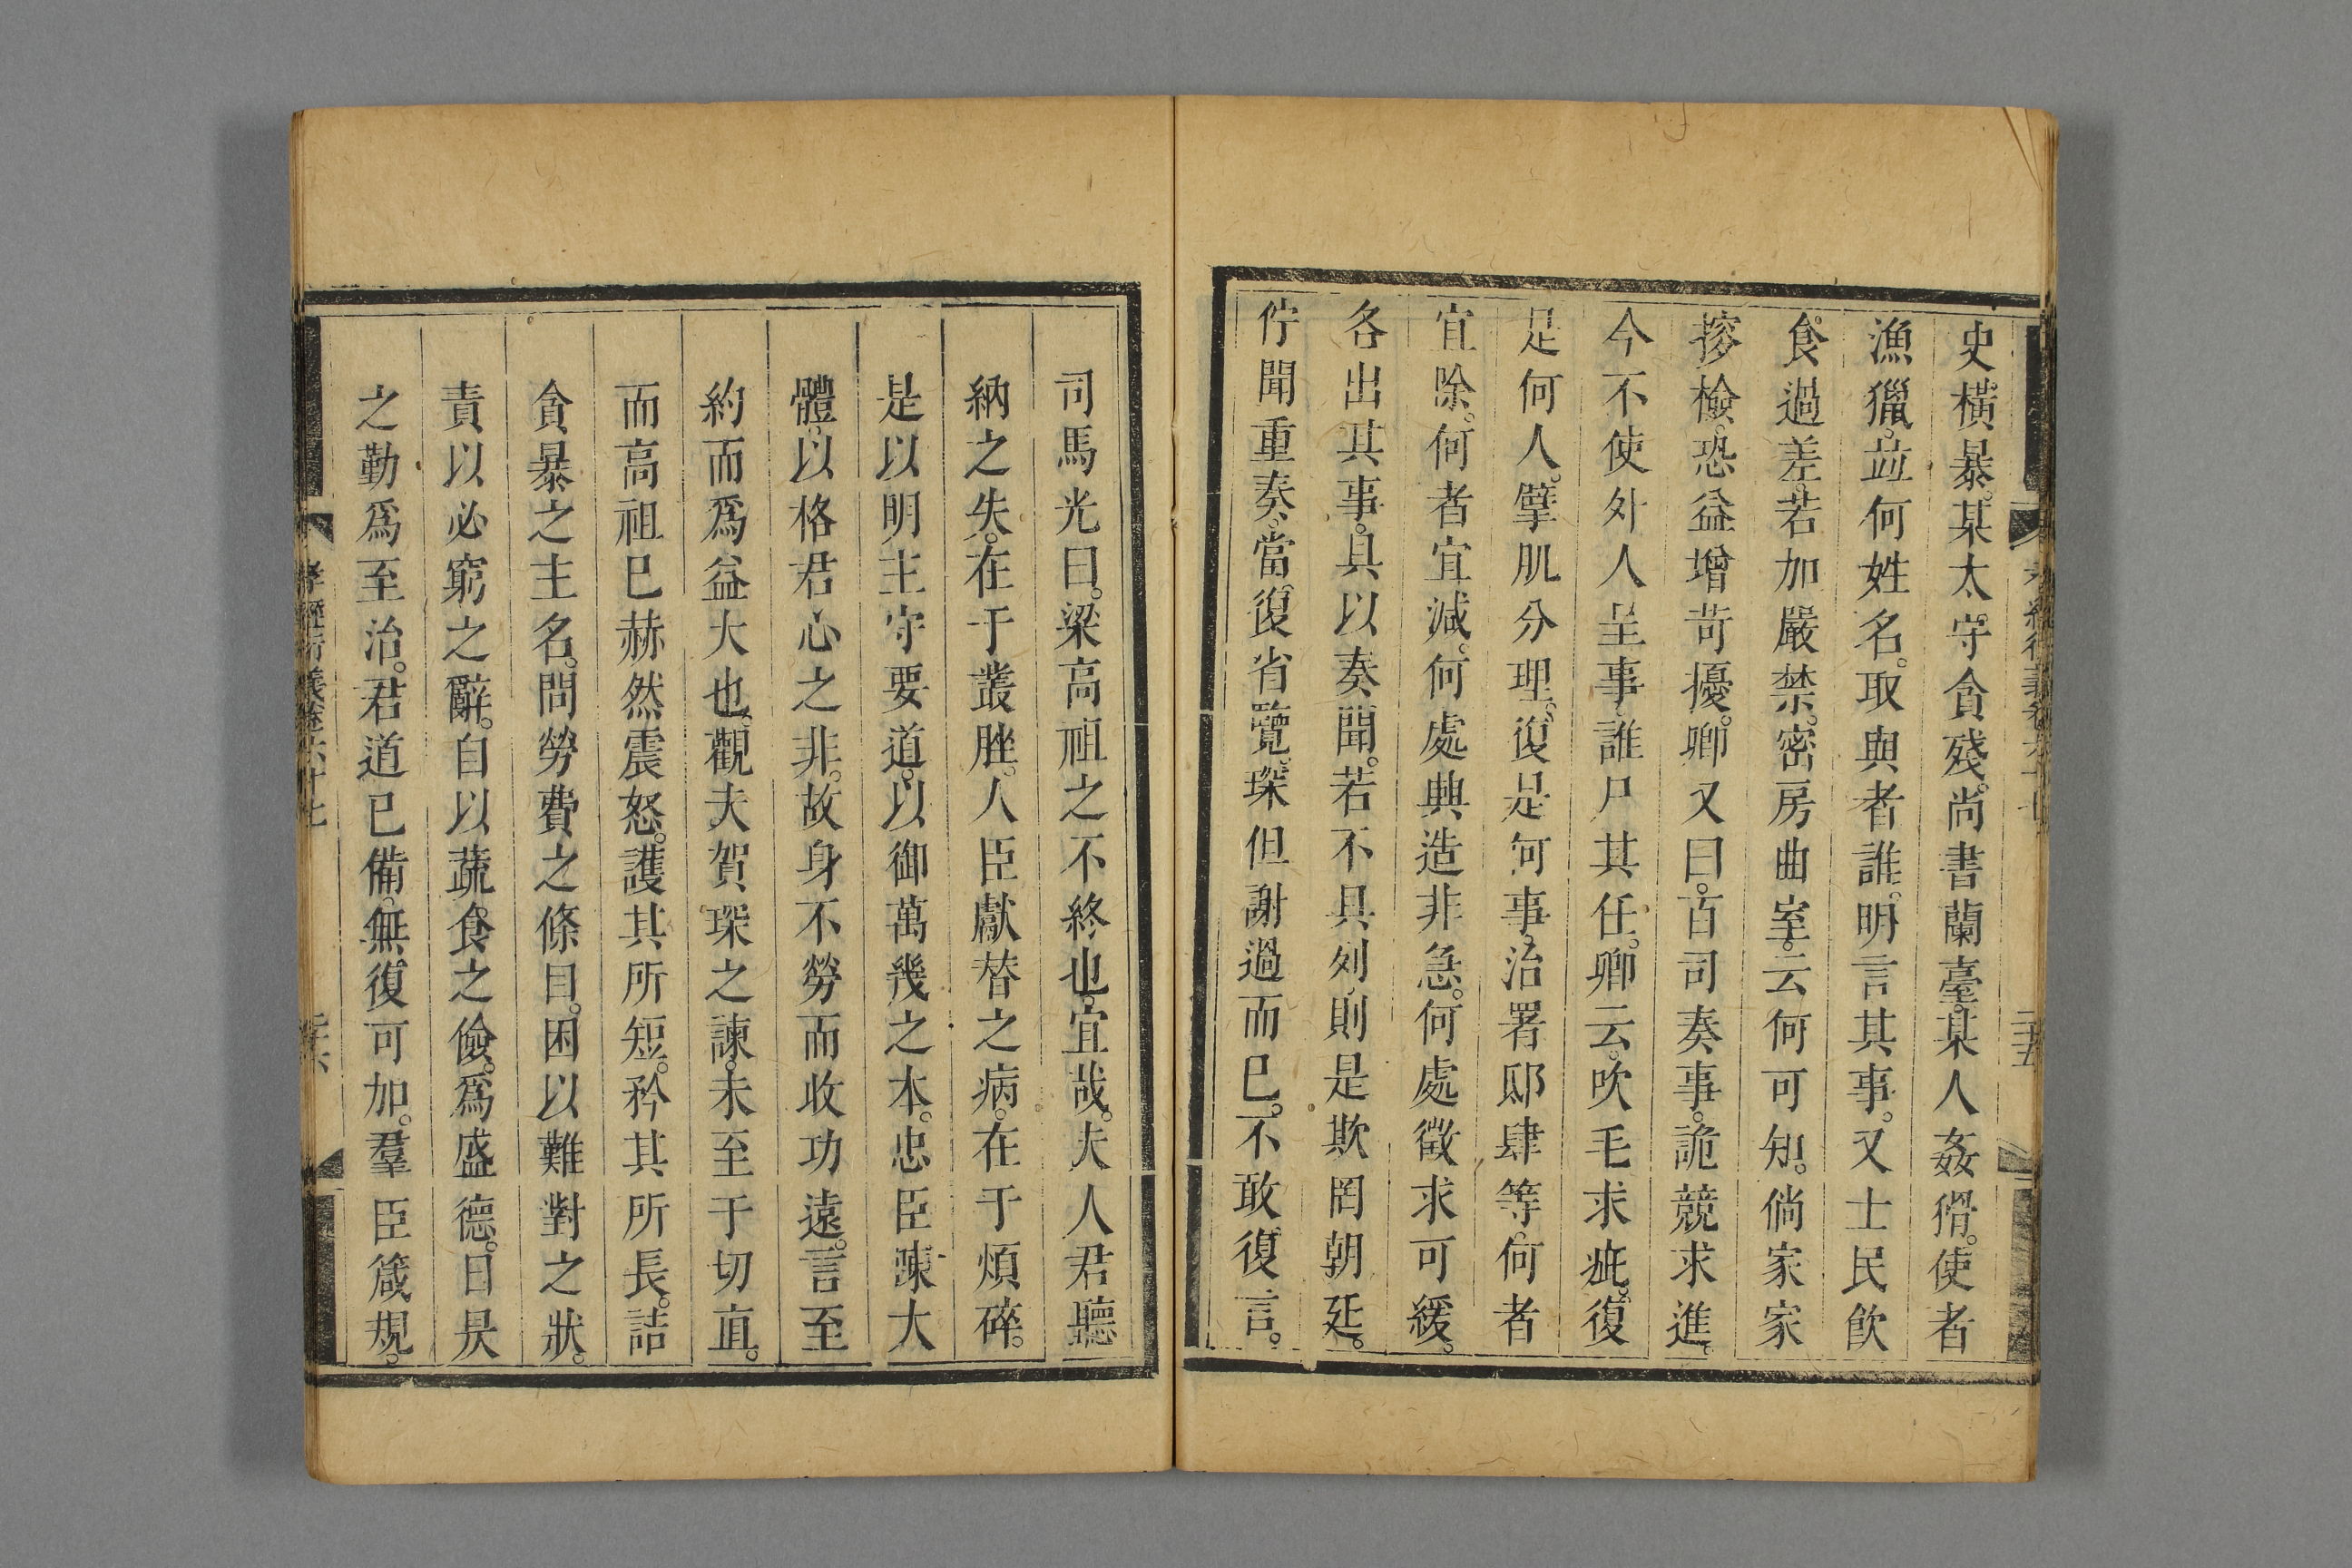 史橫暴。某太守貪殘。尚書蘭臺。某人姦猾。使者
漁獵。並何姓名。取與者誰。明言其事。又士民飮
食過差。若加嚴禁。密房曲室。云何可知。倘家家
搜檢。恐益增苛擾。卿又曰。百司奏事。詭競求進。
今不使外人呈事。誰尸其任。卿云。吹毛求疵。復
是何人。擘肌分理。復是何事。治署邸肆等。何者
宜除。何者宜減。何處興造非急。何處徵求可緩。
各出其事。具以奏聞。若不具列。則是欺罔朝廷。
佇聞重奏。當復省覽。琛但謝過而已。不敢復言。
司馬光曰。梁高祖之不終也。宜哉。夫人君聽
納之失。在于叢脞。人臣獻替之病。在于煩碎。
是以明主守要道。以御萬幾之本。忠臣陳大
體。以格君心之非。故身不勞而收功遠。言至
約而爲益大也。觀夫賀琛之諫。未至于切直。
而高祖已赫然震怒。護其所短。矜其所長。詰
貪暴之主名。問勞費之條目。困以難對之狀。
責以必窮之辭。自以蔬食之儉。爲盛德。日昃
之勤爲至治。君道已備。無復可加。羣臣箴規。
孝經衍義卷六十七
二十六